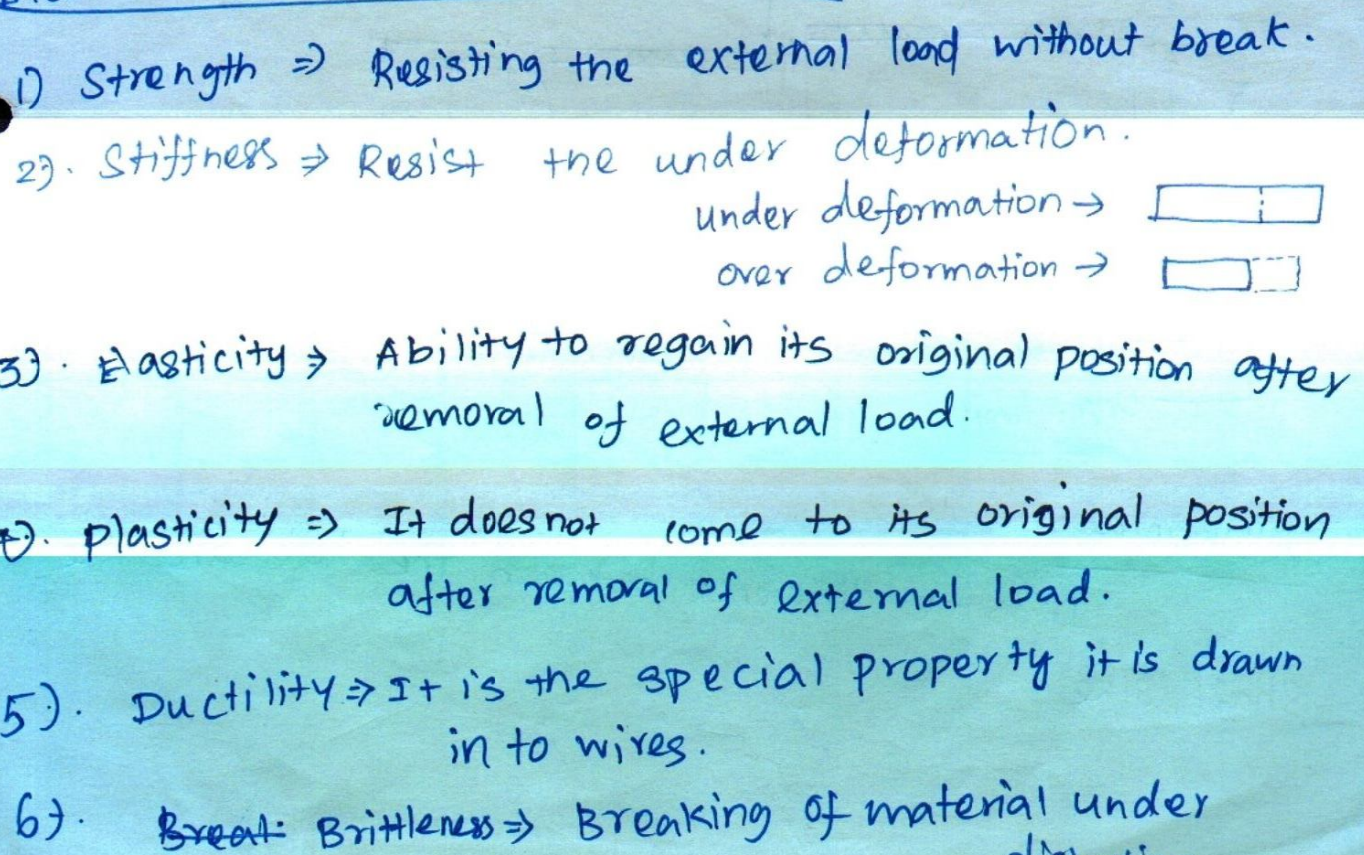 1) Strength ⇒ Resisting the external load without break.
2). Stiffness ⇒ Resist the under deformation.
under deformation →
over deformation →
3). Elasticity ⇒ Ability to regain its original position after
removal of external load.
). Plasticity ⇒ It does not come to its original position
after removal of external load.
5). Ductility ⇒ It is the special property it is drawn
in to wires.
6). Brittleness ⇒ Breaking of material under